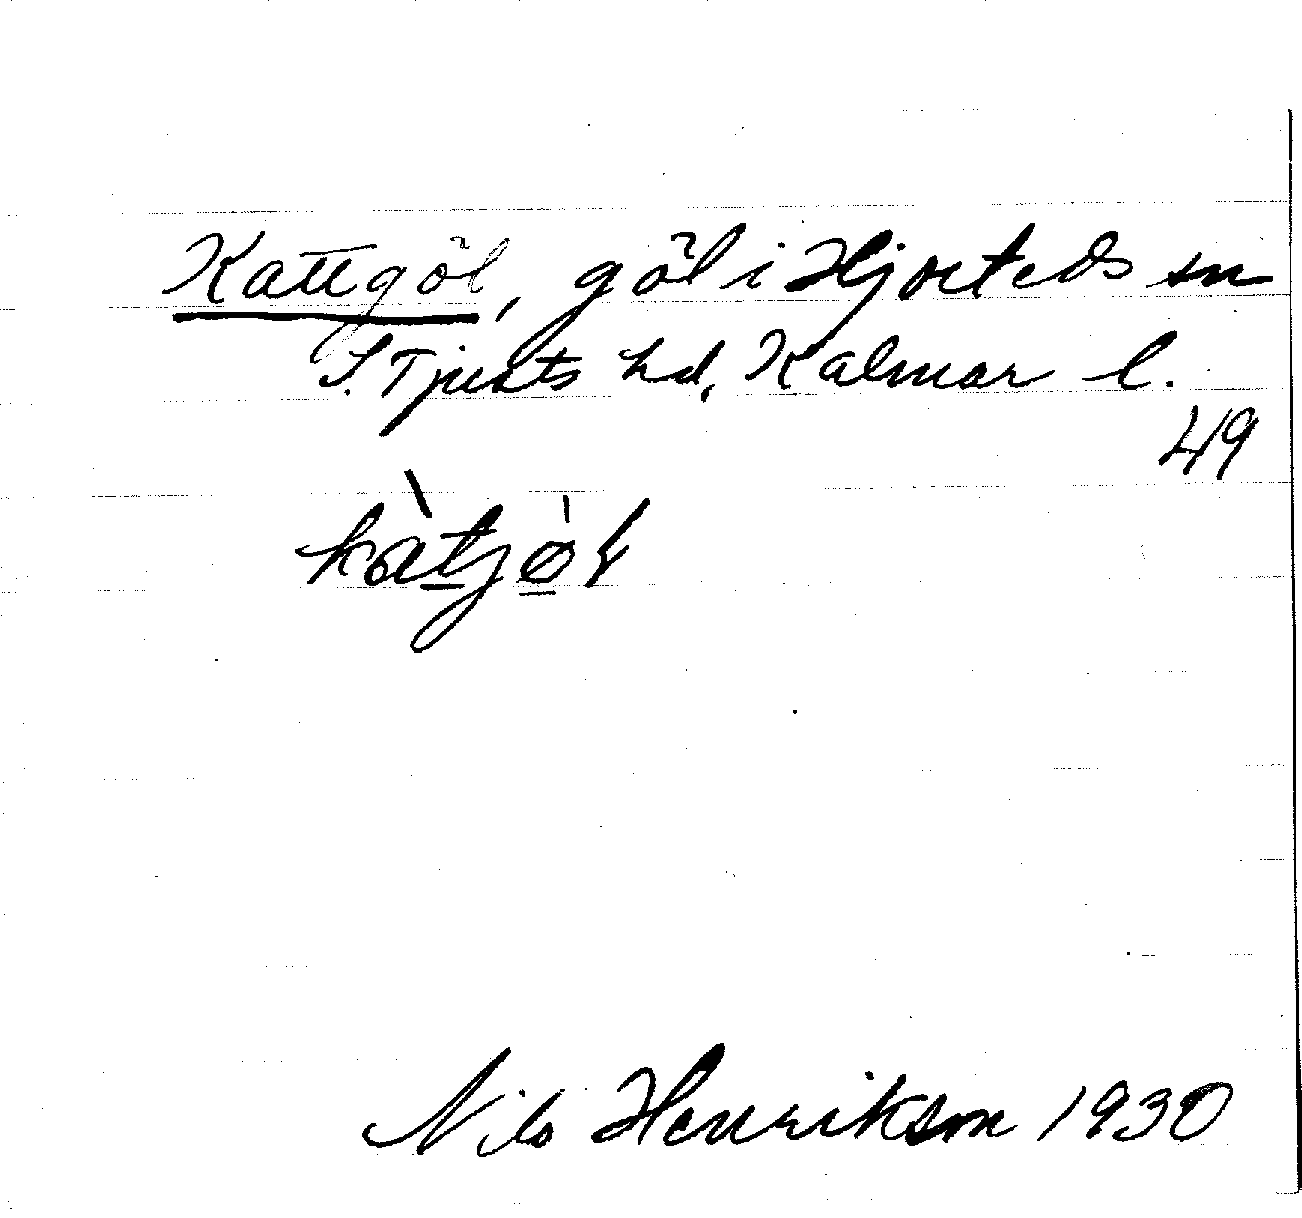 Kattgöl, göl i Hjorteds sn
S. Tjusts hd, Kalmar l.
49
kàtjø̀ł
Nils Henrikson 1930